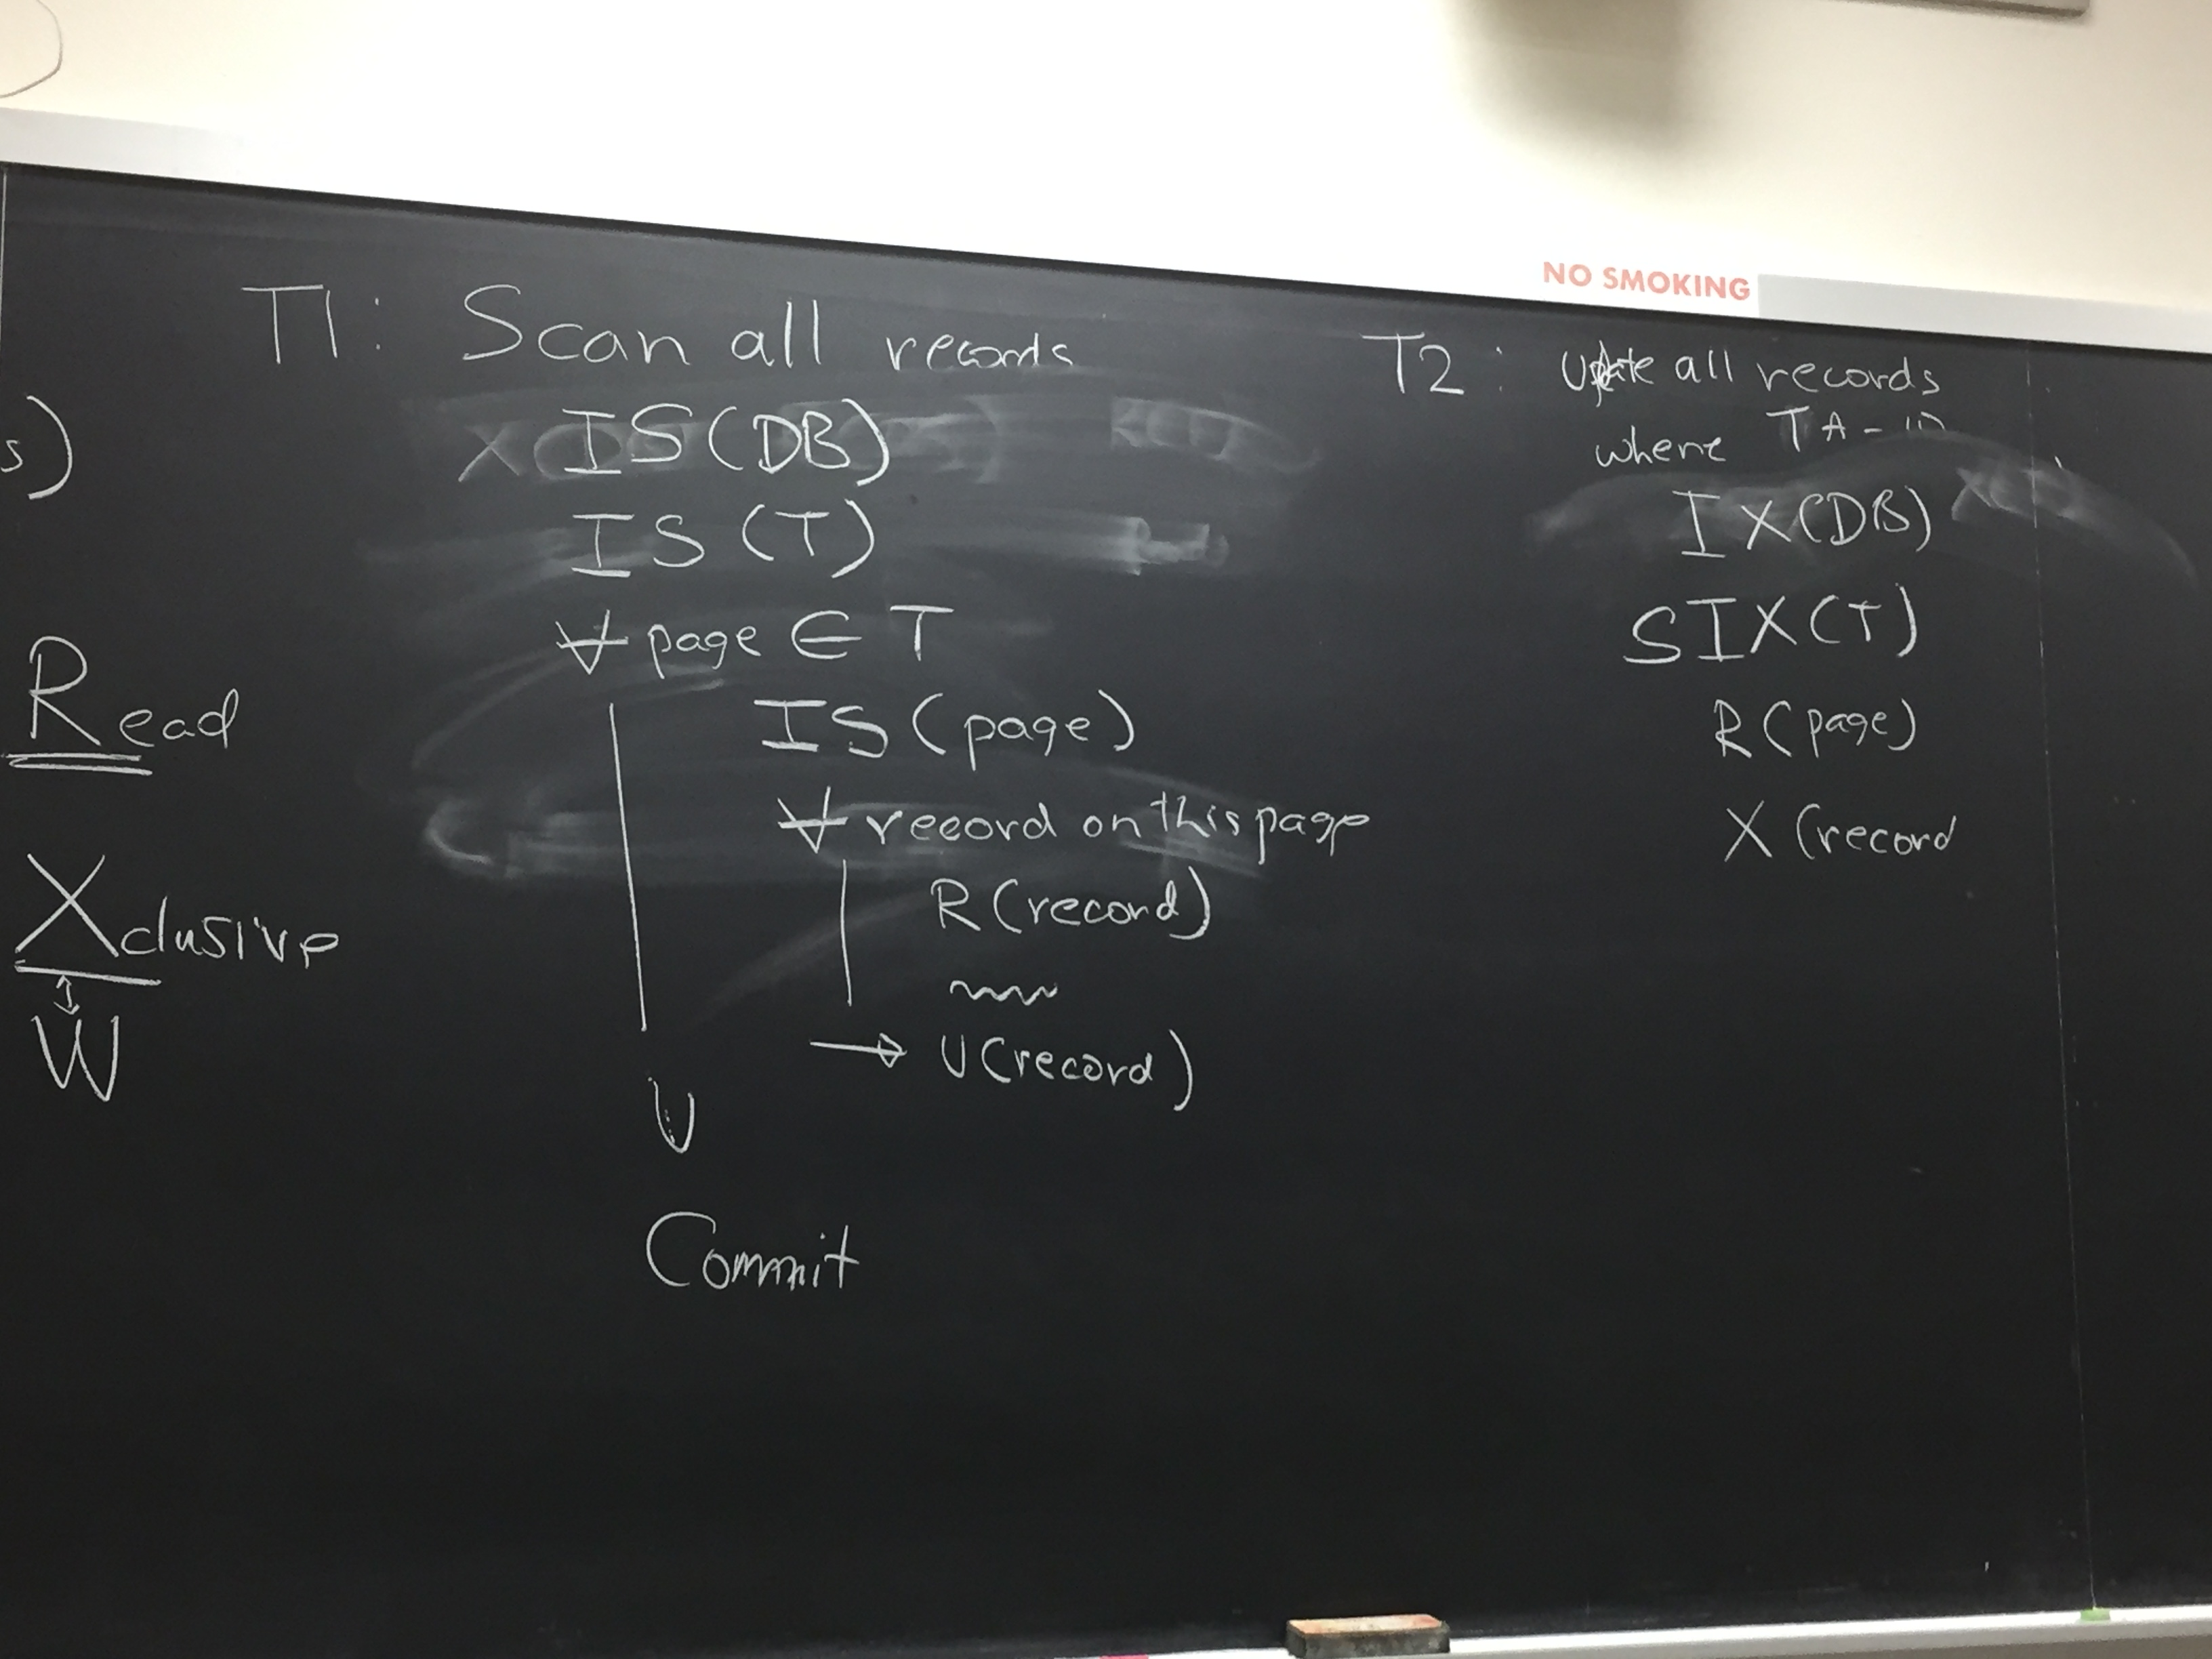 NO SMOKING
s)
Read
Xclusive
W
T1: Scan all records
IS(DB)
IS (T)
∀ page ∈ T
IS (page)
∀ record on this page
R (record)
→ U (record)
U
Commit
T2: Update all records
where TA-ID
IX(DB)
SIX(T)
R (page)
X (record